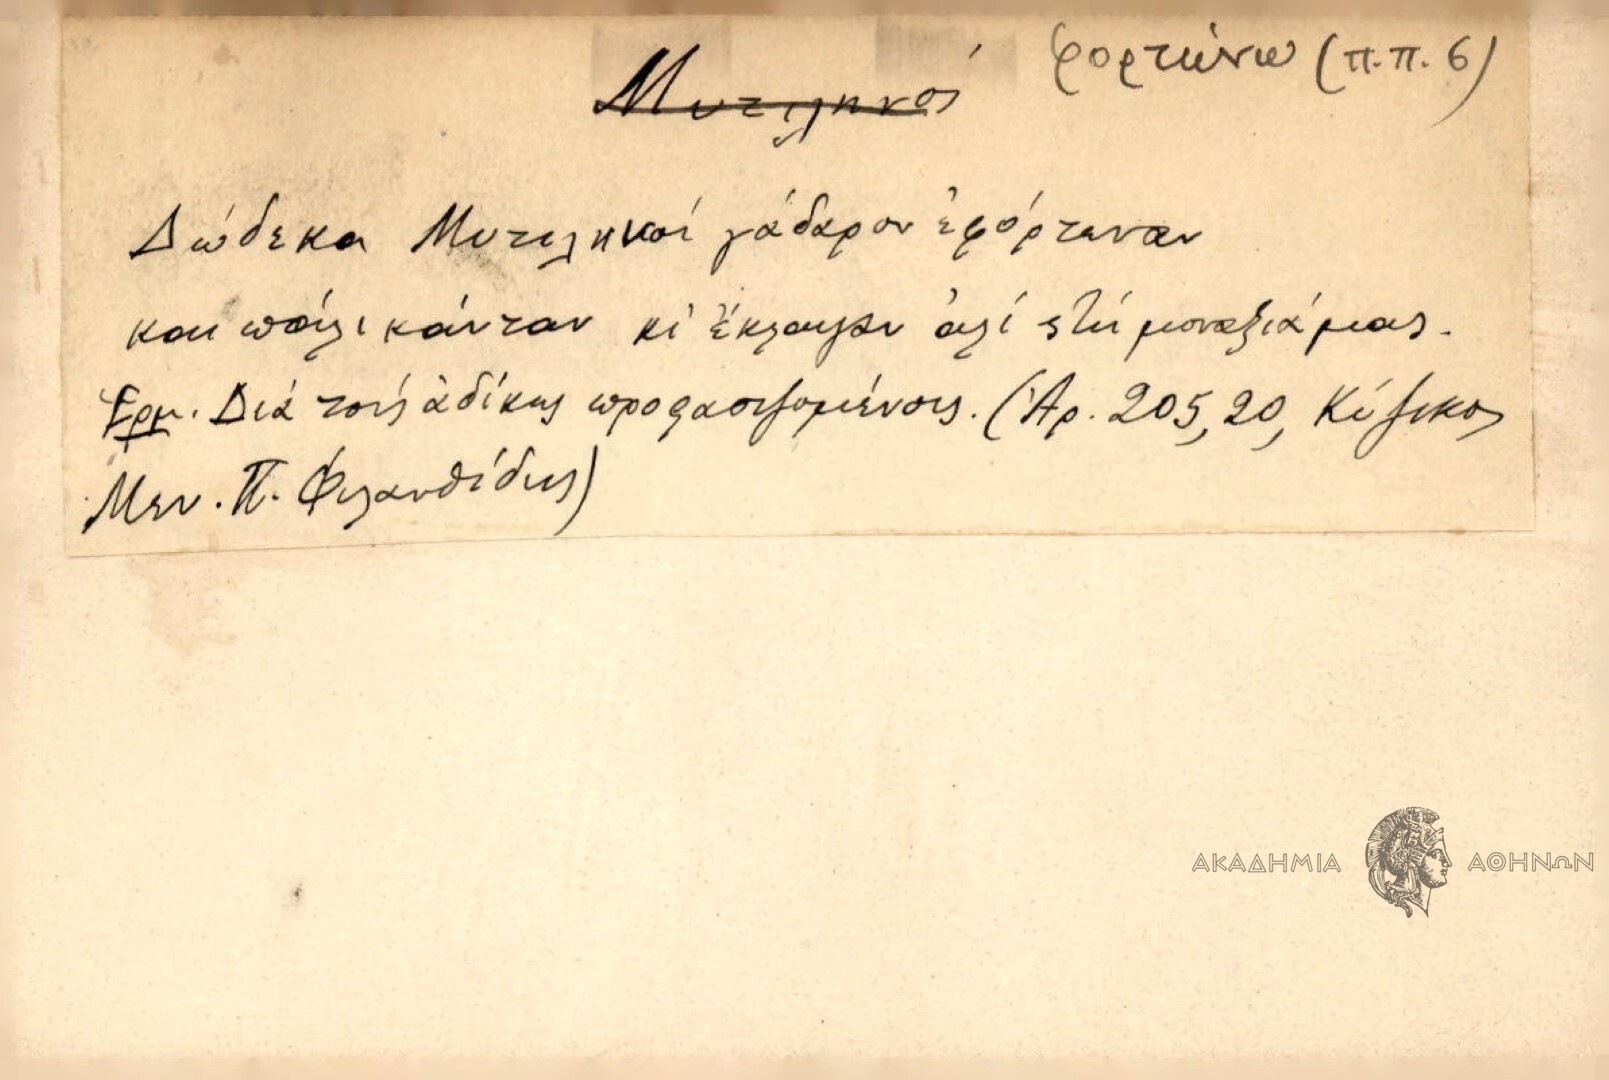 Μυτιληνός
φορτώνω (π.π. 6)
Δώδεκα Μυτιληνοί γάδαρον ἐφόρτωναν
και πάλι κάνταν κι ἔκλαιγαν ἀλί στή μοναξιά μας.
Ἑρμ. Διά τούς ἀδίκως προφασιζομένους. (Ἀρ. 205, 20, Κύζικος
Μεν. Π. Φιλανθίδης)
ΑΚΑΔΗΜΙΑ ΑΘΗΝΩΝ